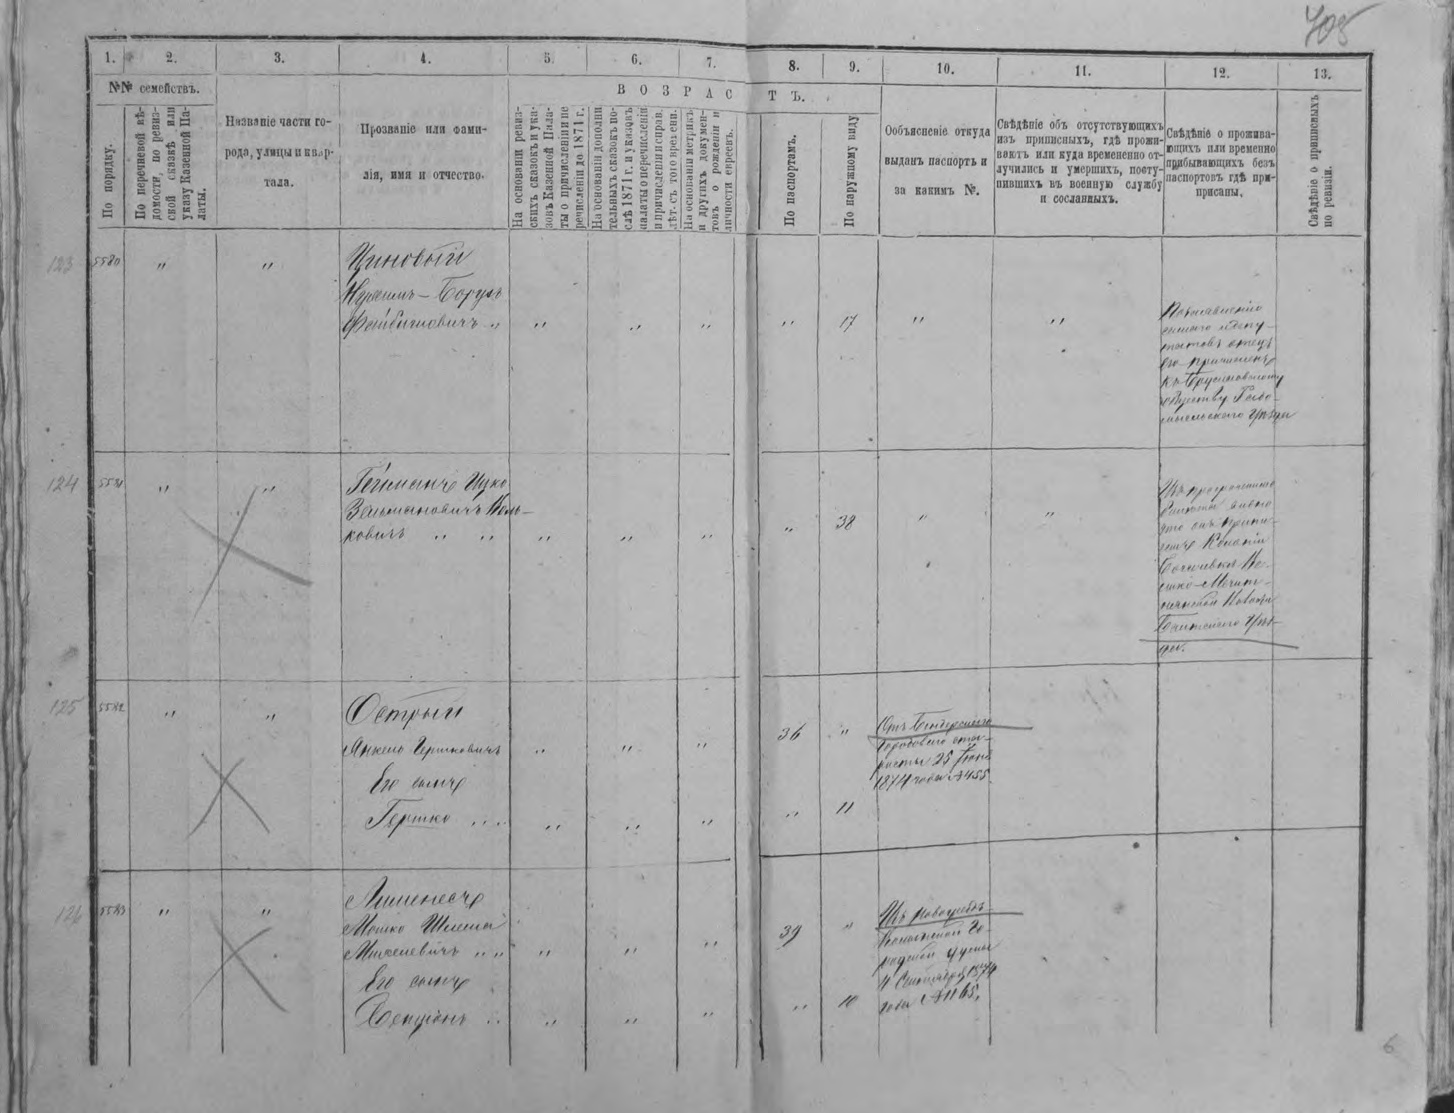 705
1. 2. 3. 4. 5. 6. 7. 8. 9. 10. 11. 12. 13.
№№ семействъ.
По порядку.
По перечневой вѣ-
домости, по ревиз-
ской сказкѣ, или
указу Казенной Па-
латы.
Названіе части го-
рода, улицы и квар-
тала.
Прозваніе или фами-
лія, имя и отчество.
ВОЗРАСТЪ.
На основаніи ревиз-
скихъ сказокъ и ука-
зовъ Казенной Пала-
ты о причисленіи пе
речисленіи до 1871 г.
На основаніи дополни
тельныхъ сказокъ по-
слѣ 1871 г. и указовъ
палаты о перечисленіи
и причисленіи исправ.
лѣт. съ того времени.
На основаніи метрикъ
и другихъ докумен-
товъ о рожденіи и
личности евреевъ.
По паспортамъ.
По наружному виду
Объясненіе откуда
выданъ паспортъ и
за какимъ №.
Свѣдѣніе объ отсутствующихъ
изъ приписныхъ, гдѣ прожи-
ваютъ или куда временено от-
лучились и умершихъ, посту-
пившихъ въ военную службу
и сосланныхъ.
Свѣдѣніе о прожива-
ющихъ или временно
прибывающихъ безъ
паспортовъ гдѣ при-
писаны.
Свѣдѣніе о приписныхъ
по ревизіи.
123 5580 " " Циновый
Нухимъ-Борухъ
Файбишовичъ " " " " " 17 " "
отецъ
его причисленъ
къ Брусиловскому
Обществу Радо-
мысльскаго Уѣзда
124 5581 " " Гейманъ Ицко
Зельмановичъ Мель-
ковичъ " " " " " " 38 " "
что онъ припи-
санъ Колоніи
125 5582 " " Острый
Янкель Гершковичъ " " " 36 " Отъ Бендерскаго
Городоваго старо-
сты 25 Іюня
1874 года №455.
Его сынъ
Гершко " " " " " " 11
126 5583 " " Лименесъ
Мошко Шлема
" " " " " 39 " Изъ Новоградъ-
Волынской Го-
родской думы
4 Сентября 1874
года №1165.
Его сынъ
" " " " " 10
6